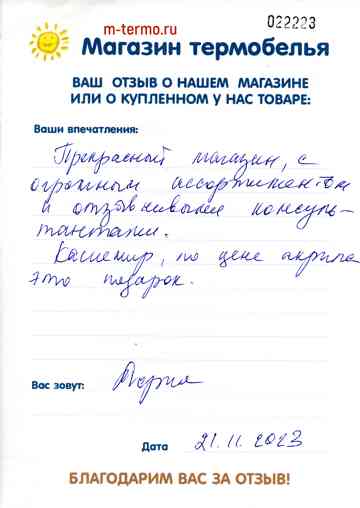 m-termo.ru
022223
Магазин термобелья
ВАШ ОТЗЫВ О НАШЕМ МАГАЗИНЕ
ИЛИ О КУПЛЕННОМ У НАС ТОВАРЕ:
Ваши впечатления:
Прекрасный магазин, с
огромным ассортиментом
и отзывчивыми консуль-
тантами.
Кашемир, по цене акрила
это подарок.
Вас зовут: Мария
Дата 21.11.2023
БЛАГОДАРИМ ВАС ЗА ОТЗЫВ!